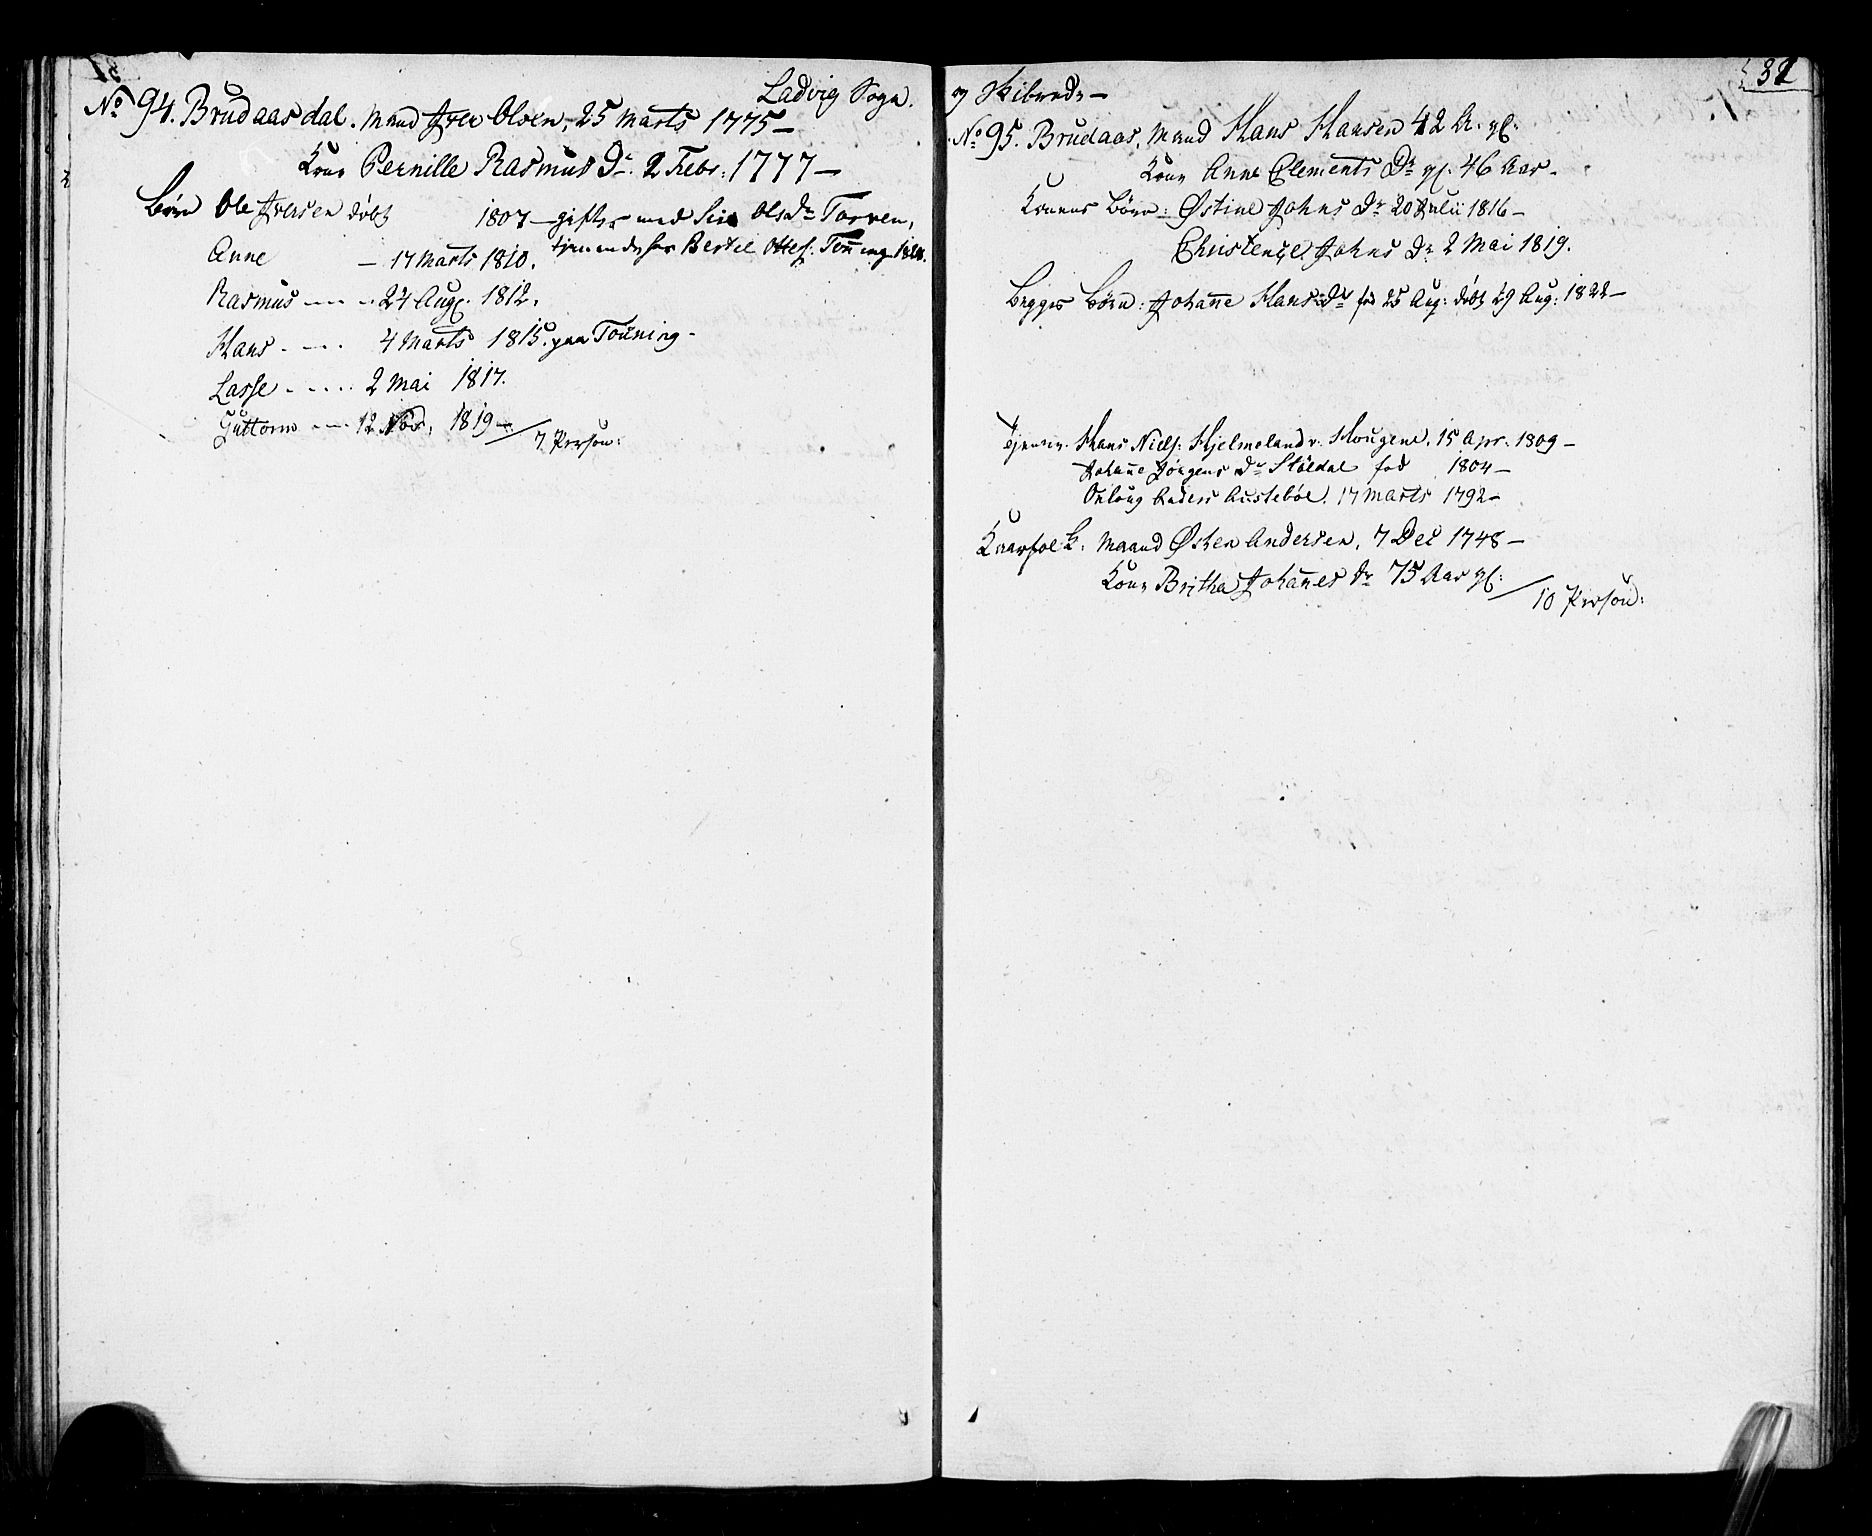 Ladvig Sogn.
No 94. Brudaasdal. Mand Iver Olsen, 25 Marts 1775 —
Kone Pernille Rasmus Dr. 2 Febr: 1777 —
Børn Ole Iversen døbt 1807 — gifter med Siri Ols Dr Torven,
tjenende hos Bertel Ottes: Tenning
Anne — 17 Marts 1810.
Rasmus — 24 Aug. 1812.
Hans - — 4 Marts 1815. paa Touning -
Lasse - . . . . 2 Mai 1817.
Guttorm — 12 Nov. 1819 —
7 Person:
7 Skibrede —
32
No 95. Brudaas, Mand Hans Hansen 42 A. gl:
Kone Anne Clements Dr gl. 46 Aar —
Konens Børn: Østine Johns Dr 20 Julii 1816 —
Christence Johns Dr 2 Mai 1819.
Begges Børn: Johanne Hans Dr fød 25 Aug: døbt 29 Aug: 1822 —
Tjenere. Hans Niels: Hjelmeland v. Hougene, 15 Apr. 1809 —
Johanne Jørgens Dr Støldal fød 1804 —
Onloug Anders Austebøe. 17 Marts 1792 —
Kaarfolk. Maand Østen Andersen, 7 Dec 1748 —
Kone Britha Johannes Dr 75 Aar gl:
10 Person: